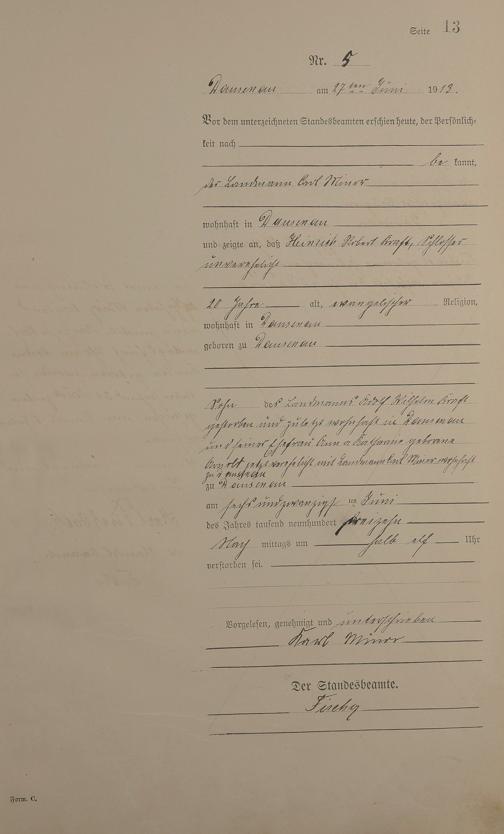 Seite 13
Nr. 5
Dausenau am 27ten Juni 1913.
Vor dem unterzeichneten Standesbeamten erschien heute, der Persönlich-
keit nach
be kannt,
der Landmann Carl Minor
wohnhaft in Dausenau
und zeigte an, daß Heinrich Robert Kraft, Schlosser
unverehelicht
20 Jahre alt, evangelischer Religion,
wohnhaft in Dausenau
geboren zu Dausenau
Sohn des Landmanns Adolf Wilhelm Kraft
gestorben und zuletzt wohnhaft in Dausenau
und seiner Ehefrau Anna Katharine geborene
jetzt verehelicht mit Landmann Carl Minor wohnhaft
zu Dausenau
am sechsundzwanzigsten Juni
des Jahres tausend neunhundert dreizehn
Nach mittags um halb elf Uhr
verstorben sei.
Vorgelesen, genehmigt und unterschrieben
Karl Minor
Der Standesbeamte.
Form. C.